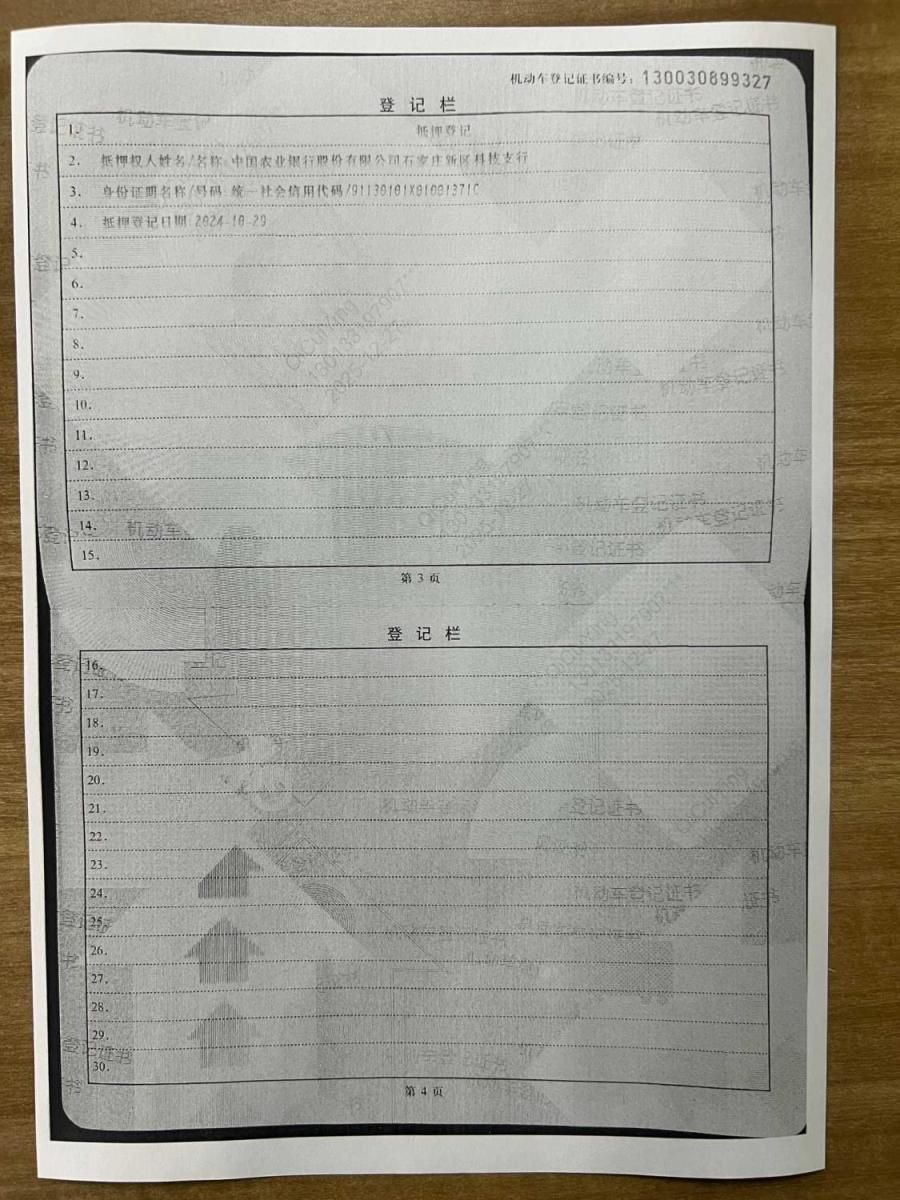 机动车登记证书编号：130030899327
登 记 栏
1. 抵押登记
2. 抵押权人姓名/名称：中国农业银行股份有限公司石家庄新区科技支行
3. 身份证明名称/号码：统一社会信用代码/91130101X01001371C
4. 抵押登记日期：2024-10-29
5.
6.
7.
8.
9.
10.
11.
12.
13.
14.
15.
第 3 页
登 记 栏
16.
17.
18.
19.
20.
21.
22.
23.
24.
25.
26.
27.
28.
29.
30.
第 4 页